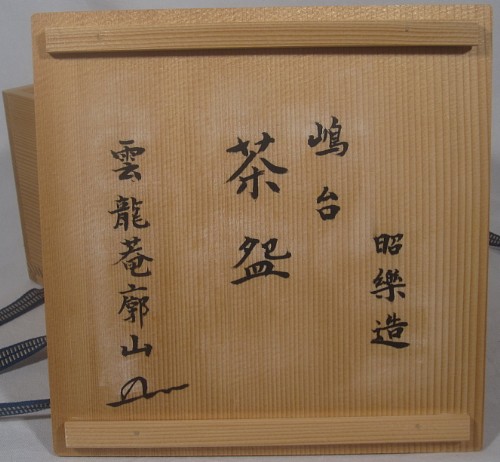 昭樂造
嶋台
茶盌
雲龍菴廓山